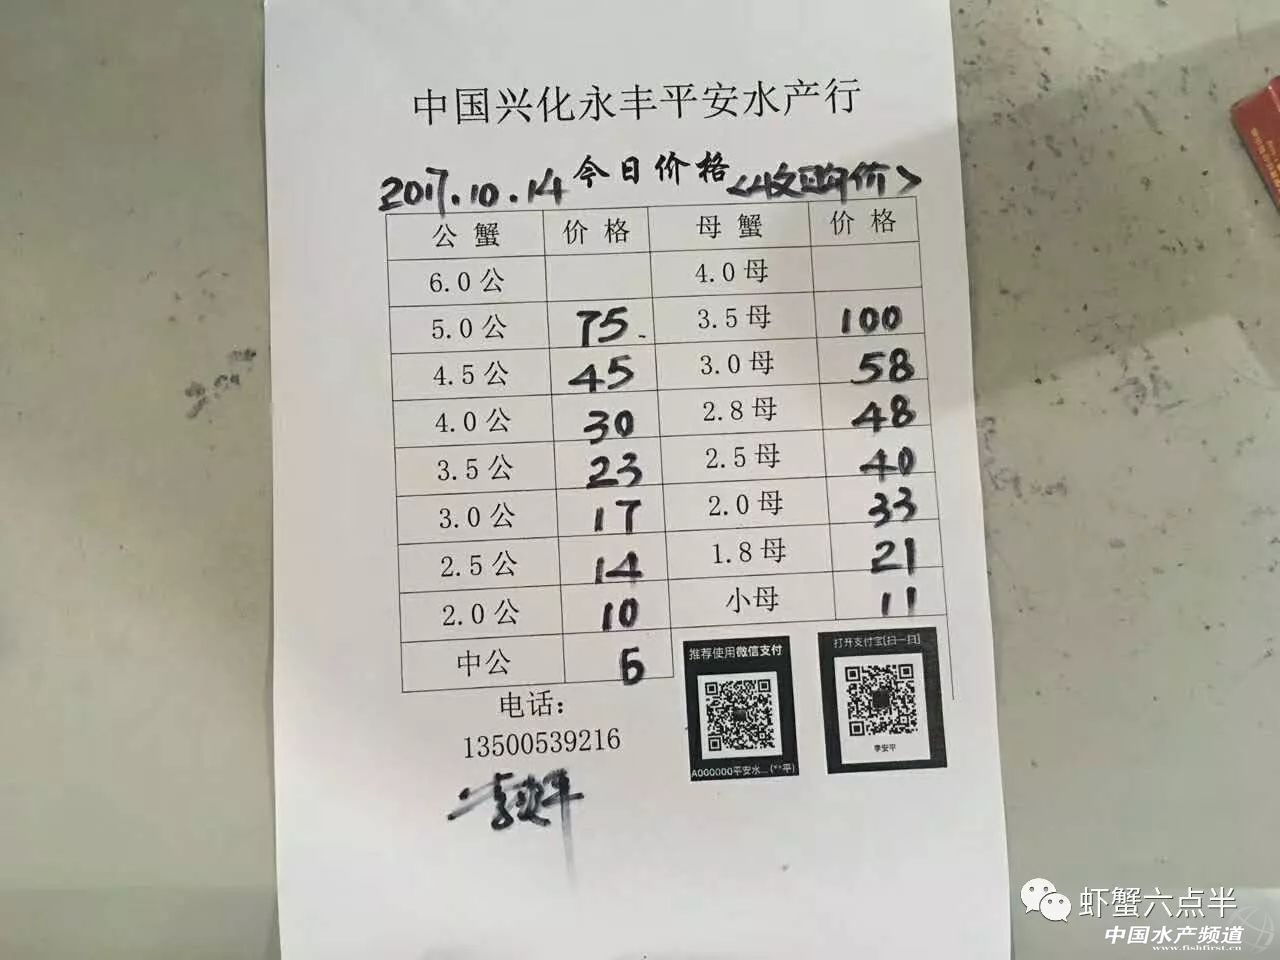 中国兴化永丰平安水产行
2017.10.14 今日价格 <收购价>
公蟹 价格 母蟹 价格
6.0公 4.0母
5.0公 75 3.5母 100
4.5公 45 3.0母 58
4.0公 30 2.8母 48
3.5公 23 2.5母 40
3.0公 17 2.0母 33
2.5公 14 1.8母 21
2.0公 10 小母 11
中公
推荐使用微信支付
打开支付宝[扫一扫]
李安平
A000000平安水...(**平)
电话：
13500539216
虾蟹六点半
中国水产频道
www.fishfirst.cn